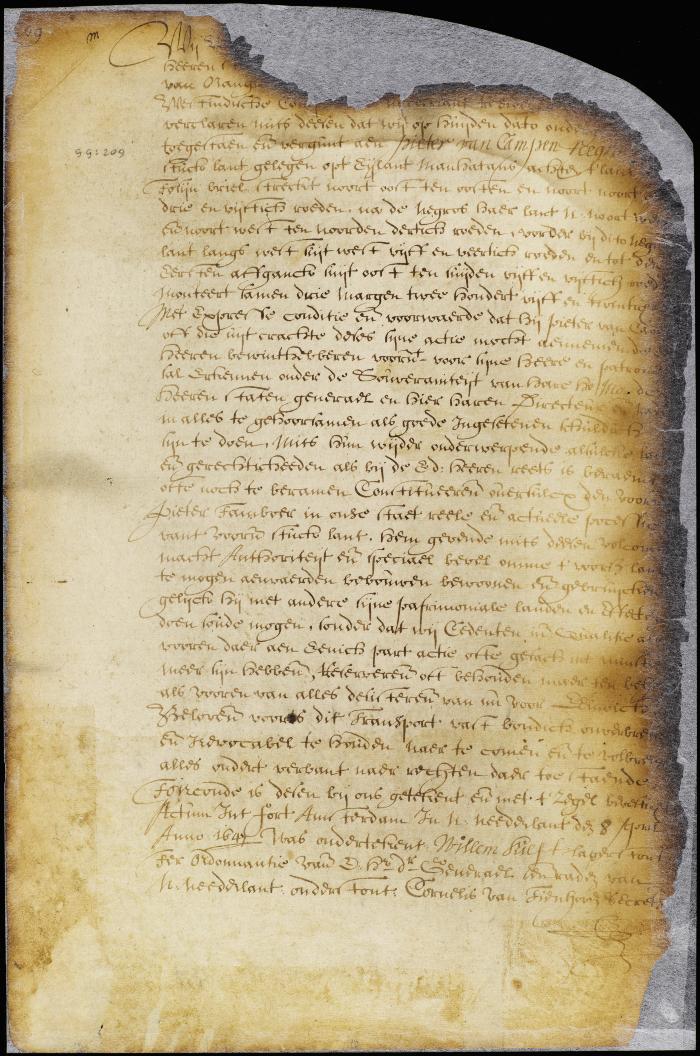 99
GG:209
Wij
heeren
van Orangi
Westindische Com
verclaren mits desen dat wij op huijden dato onde
toegestaen en vergunt aen pieter van Campen neg
stuck lant gelegen opt Eijlant Manhatans achter t lant
streckt noort oost ten oosten en noort noort
drie en vijftich roeden, na de negros haer lant n. noort
noort west ten noorden dertich roeden, voorder bij dito neg
lant langs west suijt west vijff en veertich roeden en tot de
Eersten affganck suijt oost ten suijden vijff en vijftich roed
monteert samen drie margen twee hondert vijff en twintich
Met Expresse conditie en voorwaerde dat hij pieter van Ca
off die uijt crachte deses sijne actie mocht aennemen de
heeren bewinthebberen voorn. voor sijne heere en patroon
sal Erkennen onder de Souveraniteijt van hare ho: Mo: de
heeren Staten generael en hier haren Directeur en
in alles te gehoorsamen als goede Ingesetenen schuldich
sijn te doen, Mits hem wijder onderwerpende alsulcke
en gerechticheeden als bij de Ed: heeren reets is beraemt
ofte noch te beramen Constitueeren oversulcx den voorn
pieter Tamboer in onse staet reele en actueele poses
vant voorn stuck lant, hem gevende mits desen volcom
macht Authoriteijt en speciael bevel omme t voorsz lant
te mogen aenvaerden bebouwen bewoonen en gebruijcken
gelijck hij met andere sijne patrimoniale landen en
doen soude mogen, sonder dat wij Cedenten in Qualitie als
vooren daer aen Eenich part actie ofte gesach int minst
meer sijn hebben, Reserveren oft behouden maer ten be
als vooren van alles desisteren van nu voor
Beloven voorts dit Transport vast bondich onverbre
en Irevocabel te houden naer te comen en te volbre
alles ondert verbant naer rechten daer toe staende
Toirconde is desen bij ons geteijkent en met t Zegel
Actum Int fort Amsterdam In N. Neederlant den 8 April
Anno 1647 Was onderteikent Willem Kieft lager stont
Ter Ordonnantie van d. Hr dr Generael en raden van
N. Neederlant onderstont, Cornelis van Tienhoven Secrets